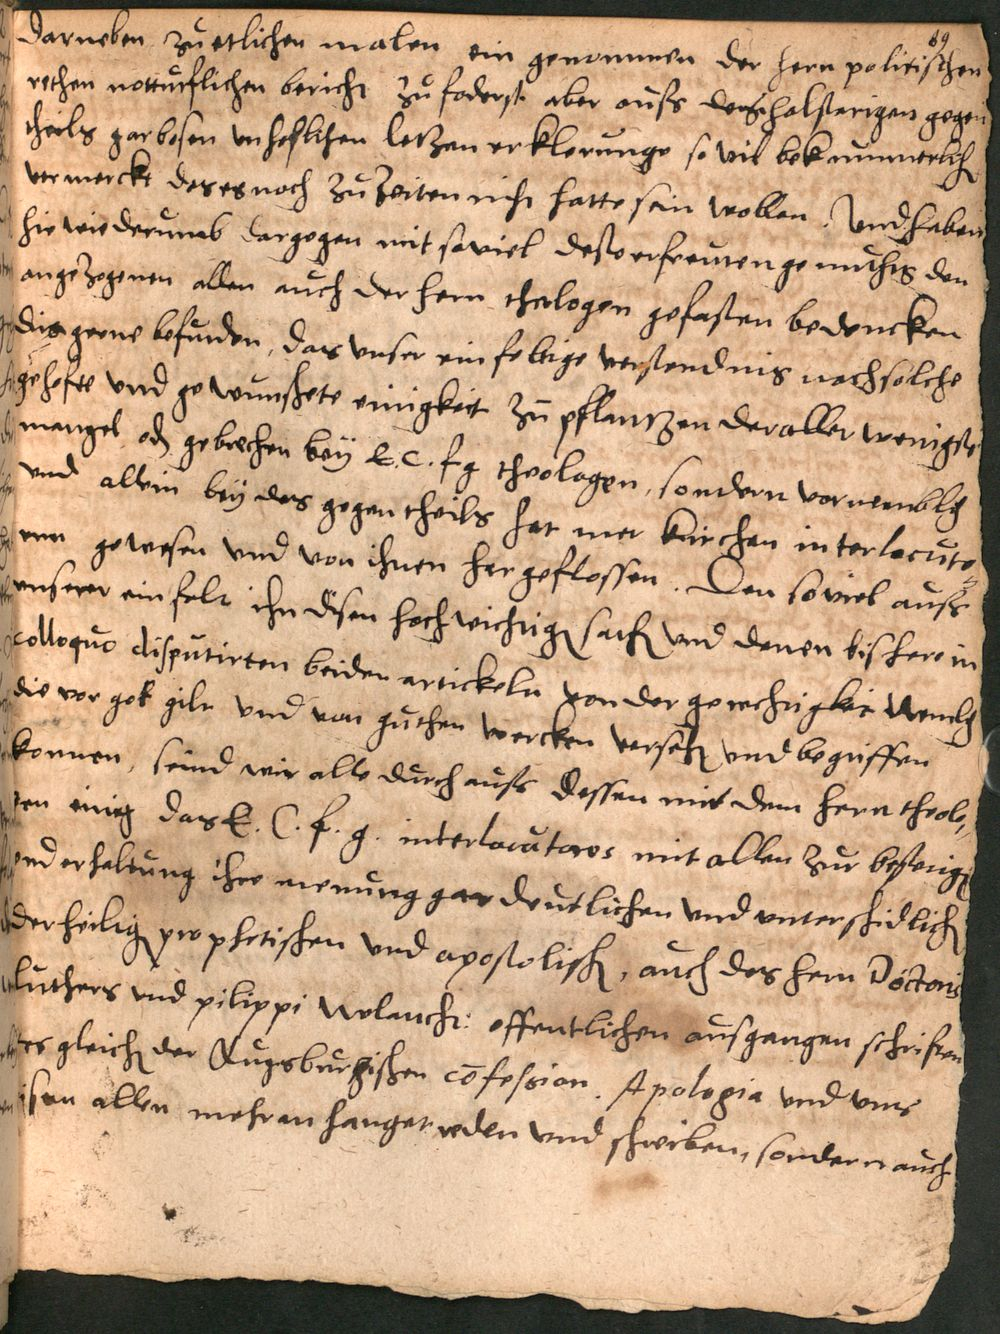 69
darneben zu etlichen malen ein genommen der hern politischen
rethen notturfftlichen bericht zu foderst aber auss der halsterigen gegen
theils gar besen letzen erklerunge so vil bekummerlich
vermerckt das es noch zu Zeiten nicht hatte sein wollen. Und haben
hie wiederumb dargegen mit so viel desto erfreuten gemuths den
angezogenen allen auch der hern thelogen gefasten bedencken
dis gerne befunden, das unser ein feltige verstendnis nach solche
gehofte und gewunschete einigkeit zu pflantzen der aller wenigste
mangel oder gebrechen bey E. C. f g theologen, sondern vornemblich
und allein bey des gegen theils her mer kirchen interlocuto
ren gewesen und von ihnen her geflossen. Den so viel auss
unserer einfelt ihn disen hochwichtigen sachen und denen bishero in
colloquio disputirten beiden artickeln von der gerechtigkeit welche
die vor got gilt und von guthen wercken verstehen und begriffen
konnen, seind wir alle durch auss dessen mit dem hern theolo,
gen einig das E. C. f. g. interlocutores mit allen zur bestetigen
und erhaltung ihre menung gar deutlichen und unterschidlichen
der heiligen prophetischen und apostolischen, auch des hern Doctoris
luthers und pilippi Melanch: offentlichen ausgangen schriften
des gleichen der Augsburgischen confession. Apologia und uns
isen allen mehr an hanget reden und schreiben, sondern auch